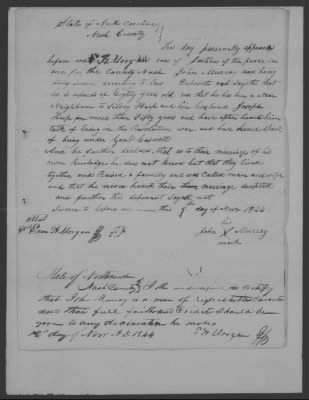 State of North Carolina
Nash County
This day personally appeared
before me E H Morgan one of Justices of the peace in
and for the County Nash John Murray and being
duly sworn according to law Deposeth and sayeth that
he is upards of Eighty years old and that he has been a Near
Neighbour to Silvey Sharp and her husband Joseph
Sharp for more than Fifty years and have often heard him
talk of being in the Revolution war and have heard Speak
of being under Genl Caswell
And he further declares, that as to their marriage of his
own knowledge he does not know but that they lived
together and Raised a family and was called man and wife
and that he never heard their marriage disputed
and further this deponant sayeth not
Sworn to before me this day of Nov 1844
attest
E H Morgan JP
his
John X Murray
mark
State of North
Nash County I the undersigned do certify
that John Murray is a man of respectable Character
and that full faith and Credit should be
given to any he makes
day of Novr AD 1844 E H Morgan JP